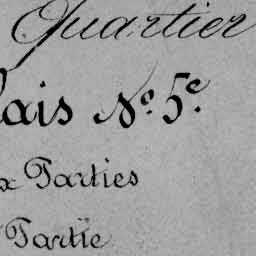 Quartier
lais No. 5e.
x Parties
Partie